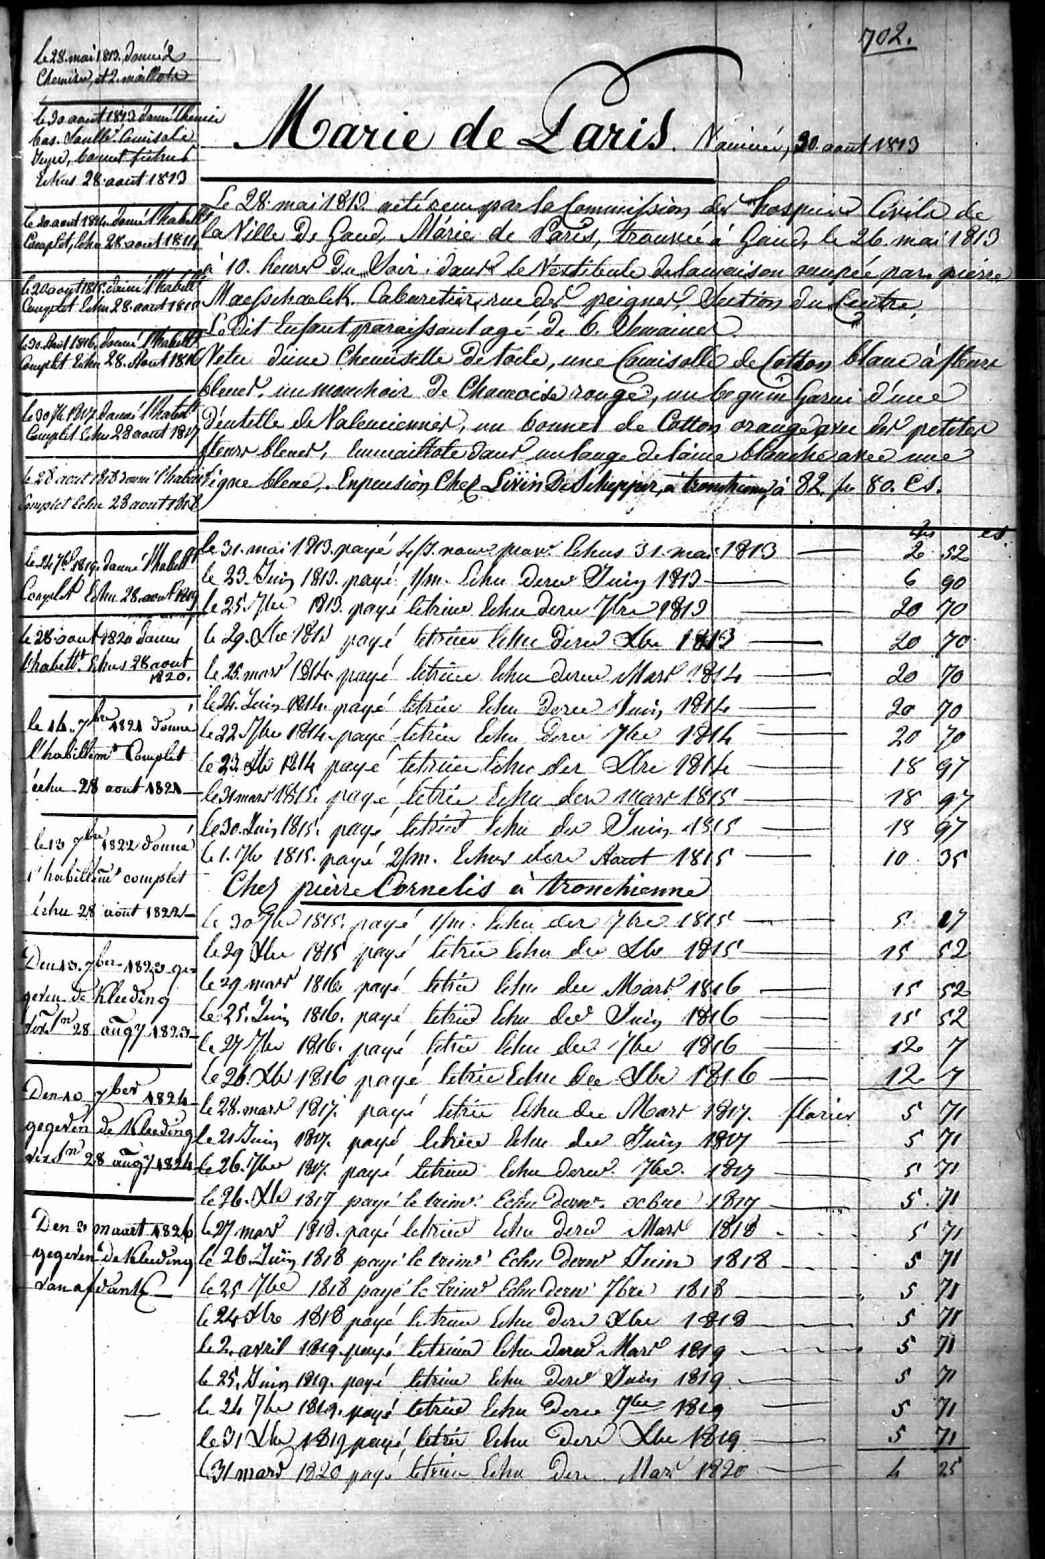 702.
le 28. mai 1813. donné 2
Chemises, et 2. maillots
le 30 aout 1813 donné Chemise
bas. Camisole
Jupe, bonnet fichus
Echus 28. aout 1813
le 30 aout 1814. donné l'habillt
Complet, Echu 28. aout 1814
le 20 aout 1815. donné l'habillt
Complet Echu 28. aout 1815
le 30. Aout 1816. donné l'habillt
Complet Echu 28. Aout 1816
le 30 7bre 1817. donné l'habillt
Complet Echu 28 aout 1817
le 28 aout 1818 donné l'habillt
Complet Echu 28 aout 1818
le 24 7bre 1819. donné l'habillt
Complet Echu 28. aout 1819
le 28. aout 1820 donné
l'habillt. Echus 28 aout
1820.
le 14. 7bre 1821 donné
l'habillemt Complet
échu 28 aout 1821
le 13 7bre 1822 donné
l'habillemt complet
échu 28 aout 1822
Den 13. 7ber 1823 ge-
geven de Kleeding
28 augs 1823
Den 10 7ber 1824
gegeven de Kleeding
28 augs 1824
Den 3 maart 1826
gegeven de Kleeding
Marie de Paris. Nominé, 30. aout 1813
Le 28. mai 1813. a été reçu par la Commission des hospices Civils de
la Ville De Gand, Marie de Paris, trouvée à Gand, le 26. mai 1813
à 10. heures du Soir, dans le Vestibule de la maison occupée par pierre
Maesschaelck. Cabaretier, rue des peignes, Section du Centre.
Le dit Enfant paraissant agé de 6. Semaines
Vetu d'une Chemisette de toile, une Camisolle de Cotton blanc à fleurs
bleues, un mouchoir de Chamoise rouge, un beguin Garni d'une
Dentelle de Valenciennes, un bonnet de Cotton orange avec des petites
fleurs bleues, Emmaillote dans un lange de laine blanche avec une
ligne bleue. En pension Chez Livin De Schepper, à tronchienne, à 82. fs 80. Cs.
fs cs.
le 31. mai 1813. payé pour Echus 31. mai 1813 2 52
le 23. Juin 1813. payé 1/m. Echu Juin 1813 6 90
le 25. 7bre 1813. payé le trim. Echu 7bre 1813 20 70
le 29. Xbre 1813 payé le trim Echu Xbre 1813 20 70
le 25. mars 1814. payé le trim Echu Mars 1814 20 70
le 24. Juin 1814. payé le trim Echu Juin 1814 20 70
le 22. 7bre 1814. payé le trim Echu 7bre 1814 20 70
le 23. Xbre 1814 payé le trim Echu der Xbre 1814 18 97
le 31 mars 1815. payé le trim Echu mars 1815 18 97
le 30. Juin 1815. payé le trim Echu der Juin 1815 18 97
le 1. 7bre 1815. payé 2/m. Echus Aout 1815 10 35
Chez pierre Cornelis à tronchienne
le 30 7bre 1815. payé 1/m. Echu der 7bre 1815 5 17
le 29 Xbre 1815 payé le trim Echu der Xbre 1815 15 52
le 29 mars 1816 payé le trim Echu der Mars 1816 15 52
le 25. Juin 1816. payé le trim Echu der Juin 1816 15 52
le 27 7bre 1816. payé le trim Echu der 7bre 1816 12 7
le 26. Xbre 1816 payé le trim Echu der Xbre 1816 12 7
le 28. mars 1817. payé le trim Echu der Mars 1817. florins 5 71
le 21 Juin 1817. payé le trim Echu der Juin 1817 5 71
le 26. 7bre 1817. payé le trim Echu 7bre. 1817 5 71
le 26. Xbre 1817 payé le trim. Echu 1817 5 71
le 27 mars 1818. payé le trim Echu Mars 1818 5 71
le 26 Juin 1818 payé le trim Echu Juin 1818 5 71
le 25 7bre 1818 payé le trim Echu 7bre 1818 5 71
le 24 Xbre 1818 payé le trim Echu Xbre 1818 5 71
le 2. avril 1819. payé le trim Echu Mars 1819 5 71
le 25. Juin 1819. payé le trim Echu Juin 1819 5 71
le 24 7bre 1819. payé le trim Echu 7bre 1819 5 71
le 31 Xbre 1819 payé le trim Echu Xbre 1819 5 71
le 31 mars 1820 payé le trim Echu Mars 1820 4 25